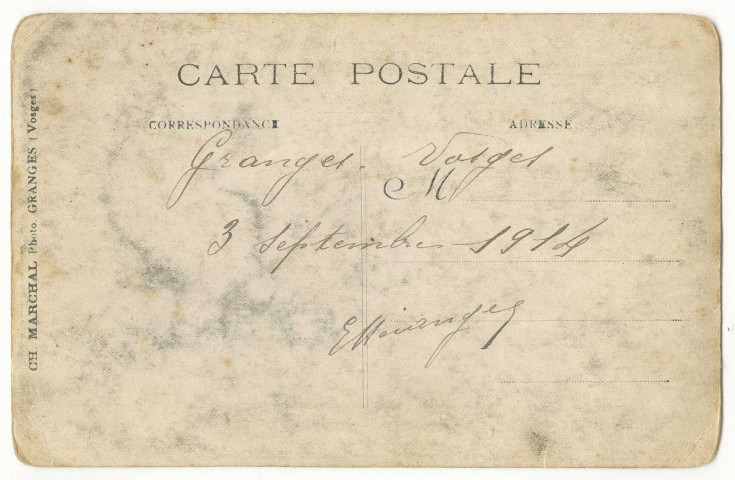 CARTE POSTALE
CORRESPONDANCE ADRESSE
Granges. Vosges
M
3 Septembre 1914
CH MARCHAL Photo. GRANGES (Vosges)